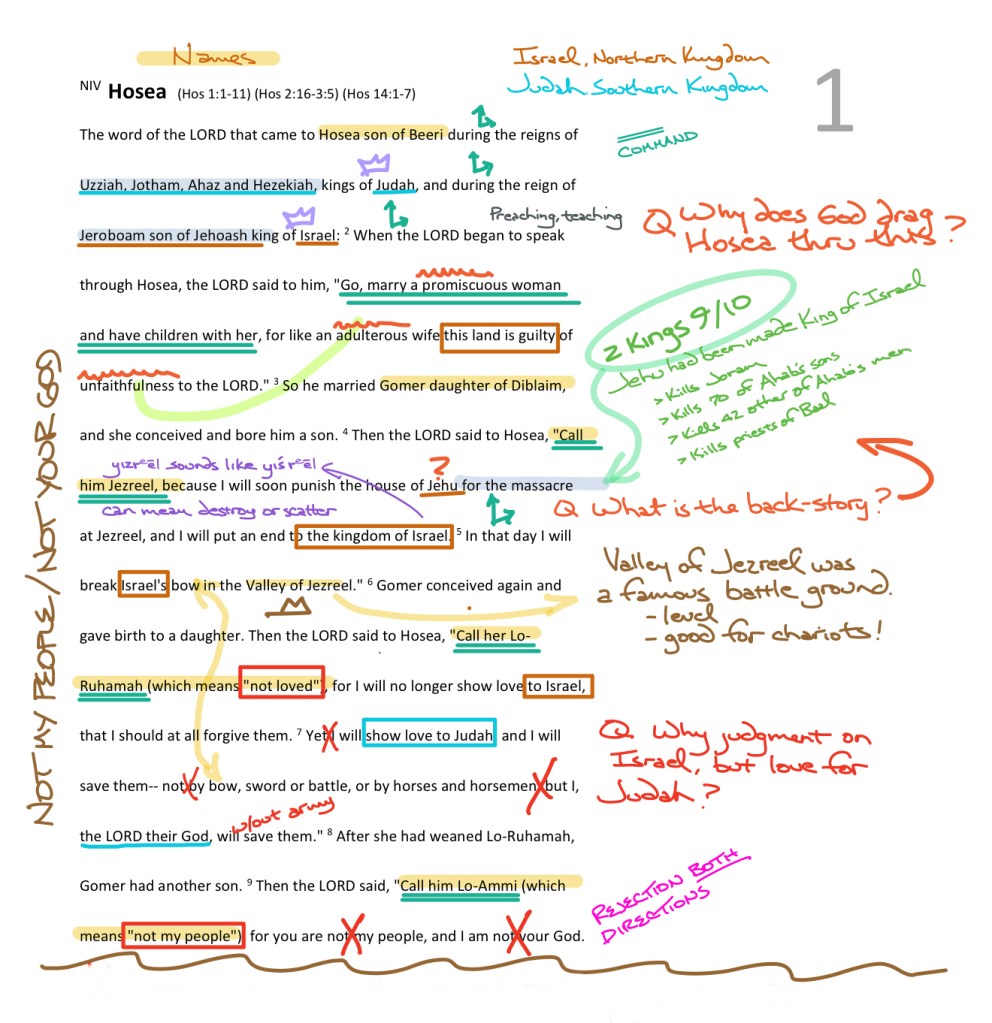 Names
Israel, Northern Kingdom
Judah Southern Kingdom
1
NIV Hosea (Hos 1:1-11) (Hos 2:16-3:5) (Hos 14:1-7)
The word of the LORD that came to Hosea son of Beeri during the reigns of
COMMAND
Uzziah, Jotham, Ahaz and Hezekiah, kings of Judah, and during the reign of
Preaching, teaching
Jeroboam son of Jehoash king of Israel: 2 When the LORD began to speak
Q Why does God drag
Hosea thru this?
through Hosea, the LORD said to him, "Go, marry a promiscuous woman
and have children with her, for like an adulterous wife this land is guilty of
2 Kings 9/10
Jehu had been made King of Israel
> Kills Joram
> Kills 70 of Ahab's sons
> Kills 42 other of Ahab's men
> Kills priests of Baal
unfaithfulness to the LORD." 3 So he married Gomer daughter of Diblaim,
and she conceived and bore him a son. 4 Then the LORD said to Hosea, "Call
yizreēl sounds like yiśreēl
?
him Jezreel, because I will soon punish the house of Jehu for the massacre
can mean destroy or scatter
Q What is the back-story?
at Jezreel, and I will put an end to the kingdom of Israel. 5 In that day I will
break Israel's bow in the Valley of Jezreel." 6 Gomer conceived again and
Valley of Jezreel was
a famous battle ground.
- level
- good for chariots!
gave birth to a daughter. Then the LORD said to Hosea, "Call her Lo-
Ruhamah (which means "not loved"), for I will no longer show love to Israel,
that I should at all forgive them. 7 Yet I will show love to Judah; and I will
Q Why judgment on
Israel, but love for
Judah?
save them-- not by bow, sword or battle, or by horses and horsemen, but I,
w/out army
the LORD their God, will save them." 8 After she had weaned Lo-Ruhamah,
Gomer had another son. 9 Then the LORD said, "Call him Lo-Ammi (which
REJECTION BOTH
DIRECTIONS
means "not my people"), for you are not my people, and I am not your God.
NOT MY PEOPLE / NOT YOUR GOD